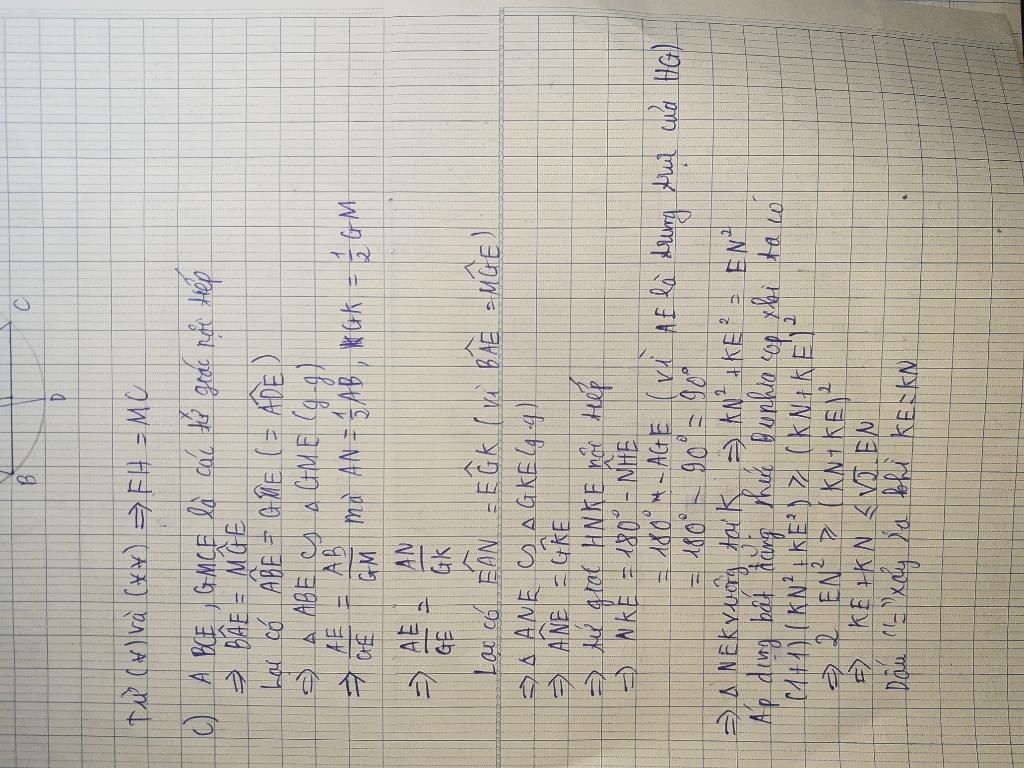 B
C
D
Từ (*) và (**) ⇒ FH = MC
c) ABCE, GMCE là các tứ giác nội tiếp
⇒ BÂE = MĜE
Lại có ABE = GME (= ADE)
⇒ Δ ABE ∽ Δ GME (g.g)
⇒ AE/GE = AB/GM mà AN = 1/2 AB, GK = 1/2 GM
⇒ AE/GE = AN/GK
Lại có EAN = EGK (vì BAE = MGE)
⇒ Δ ANE ∽ Δ GKE (g.g)
⇒ ANE = GKE
⇒ tứ giác HNKE nội tiếp
⇒ NKE = 180° - NHE
= 180° - AGE (vì AE là trung trực của HG)
= 180° - 90° = 90°
⇒ Δ NEK vuông tại K ⇒ KN² + KE² = EN²
Áp dụng bất đẳng thức Bunhia cop xki ta có
(1+1)(KN² + KE²) ≥ (KN + KE)²
⇒ 2 EN² ≥ (KN + KE)²
⇒ KE + KN ≤ √2 EN
Dấu "=" xảy ra khi KE = KN